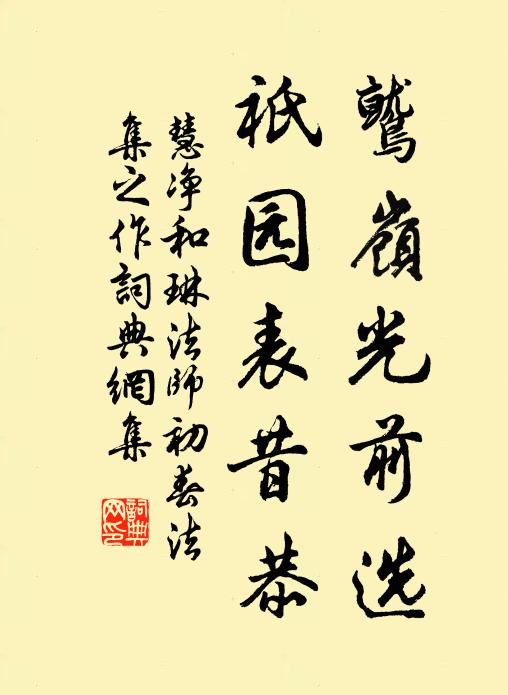 鷲嶺光前选
祇园表昔恭
慧净和琳法師初春法
集之作詞典網集
詞典
网印